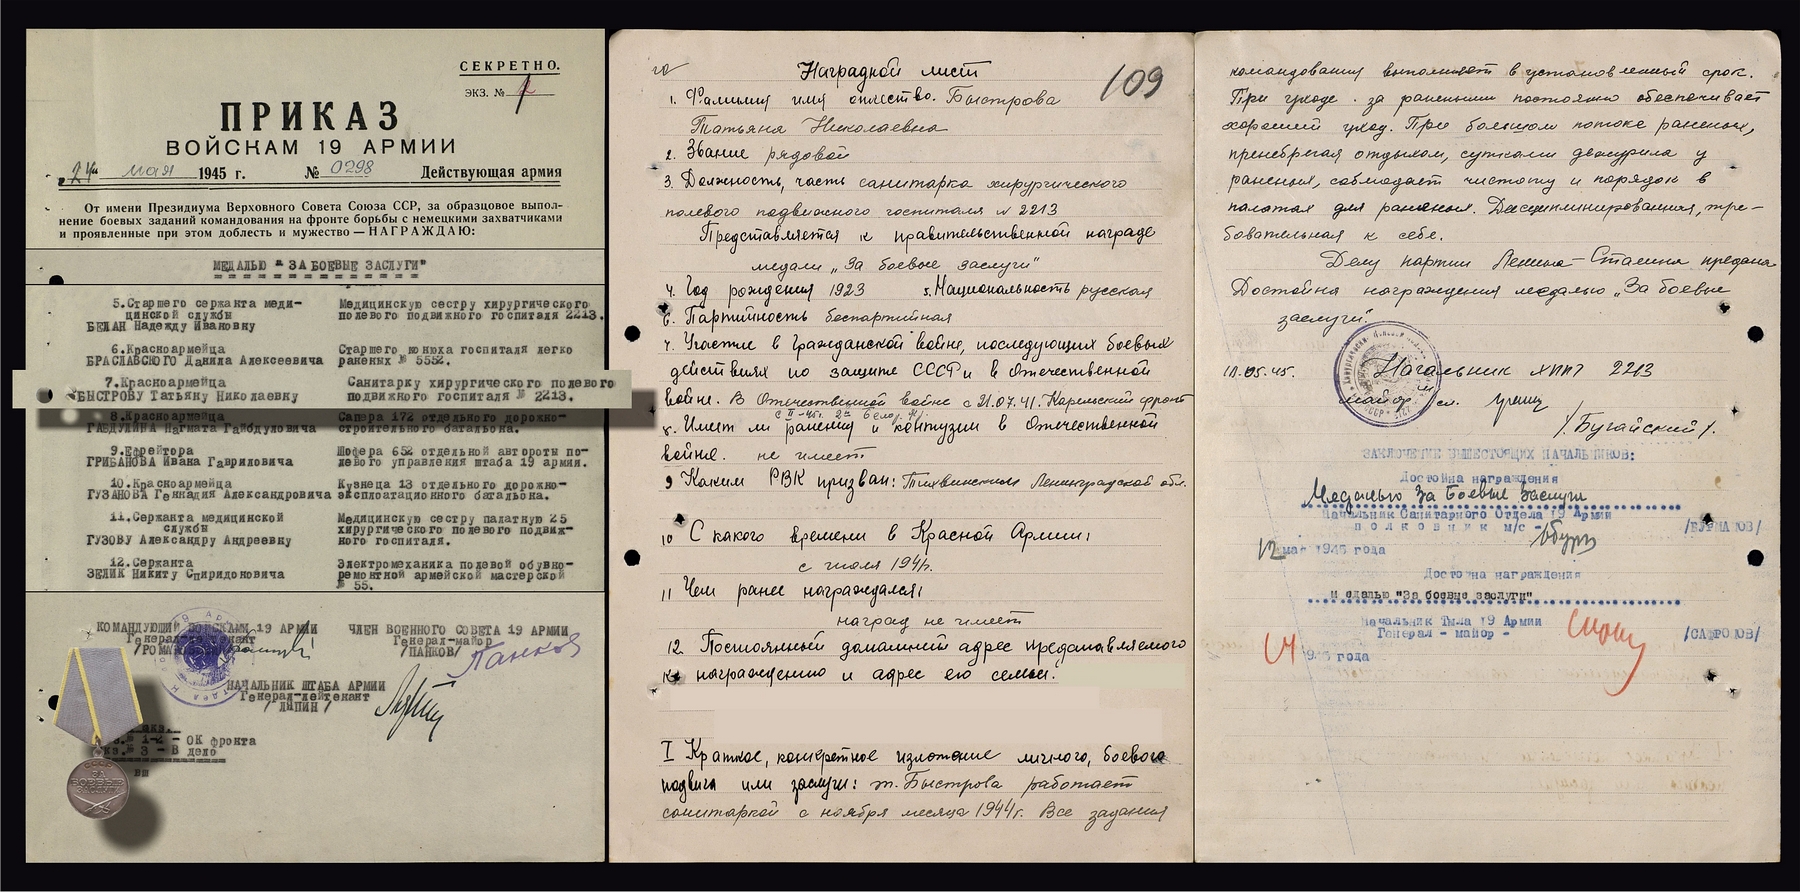 СЕКРЕТНО.
ЭКЗ. №
ПРИКАЗ
ВОЙСКАМ 19 АРМИИ
„24“ мая 1945 г. № 0298 Действующая армия
От имени Президиума Верховного Совета Союза ССР, за образцовое выпол-
нение боевых заданий командования на фронте борьбы с немецкими захватчиками
и проявленные при этом доблесть и мужество — НАГРАЖДАЮ:
МЕДАЛЬЮ "ЗА БОЕВЫЕ ЗАСЛУГИ"
5.Старшего сержанта меди-
цинской службы
БЕЛАН Надежду Ивановну
Медицинскую сестру хирургического
полевого подвижного госпиталя 2213.
6.Красноармейца
БРАСЛАВСКОГО Данила Алексеевича
Старшего конюха госпиталя легко
раненых № 5552.
7.Красноармейца
БЫСТРОВУ Татьяну Николаевну
Санитарку хирургического полевого
подвижного госпиталя № 2213.
8.Красноармейца
ГАБДУЛИНА Нагмата Гайбдуловича
Сапера 172 отдельного дорожно-
строительного батальона.
9.Ефрейтора
ГРИБАНОВА Ивана Гавриловича
Шофера 652 отдельной автороты по-
левого управления штаба 19 армии.
10.Красноармейца
ГУЗАНОВА Геннадия Александровича
Кузнеца 13 отдельного дорожно-
эксплоатационного батальона.
11.Сержанта медицинской
службы
ГУЗОВУ Александру Андреевну
Медицинскую сестру палатную 25
хирургического полевого подвиж-
ного госпиталя.
12.Сержанта
ЗЕЛИК Никиту Спиридоновича
Электромеханика полевой обувно-
ремонтной армейской мастерской
№ 55.
КОМАНДУЮЩИЙ ВОЙСКАМИ 19 АРМИИ
Генерал-лейтенант
ЧЛЕН ВОЕННОГО СОВЕТА 19 АРМИИ
Генерал-майор
/ПАНКОВ/
НАЧАЛЬНИК ШТАБА АРМИИ
Генерал-лейтенант
/ЛЯПИН/
1-2 - ОК фронта
экз.№ 3 - В дело
вш
СССР
ЗА
БОЕВЫЕ
ЗАСЛУГИ
109
Наградной лист
1. Фамилия имя отчество. Быстрова
Татьяна Николаевна
2. Звание рядовой
3. Должность, часть санитарка хирургического
полевого подвижного госпиталя № 2213
Представляется к правительственной награде
медали „За боевые заслуги“
4. Год рождения 1923 5. Национальность русская
6. Партийность беспартийная
7. Участие в Гражданской войне, последующих боевых
действиях по защите СССР и в Отечественной
войне. В Отечественной войне с 21.07.41. Карельский фронт
с II-45г. 2й Белор. Ф.
8. Имеет ли ранения и контузии в Отечественной
войне. не имеет
9 Каким РВК призван: Тихвинским Ленинградской обл.
10 С какого времени в Красной Армии:
с июля 1941г.
11 Чем ранее награждался:
наград не имеет
12. Постоянный домашний адрес представляемого
к награждению и адрес его семьи.
I Краткое, конкретное изложение личного, боевого
подвига или заслуги: т. Быстрова работает
санитаркой с ноября месяца 1944г. Все задания
командования выполняет в установленный срок.
При уходе за ранеными постоянно обеспечивает
хороший уход. При большом потоке раненых,
пренебрегая отдыхом, сутками дежурила у
раненых, соблюдает чистоту и порядок в
палатах для раненых. Дисциплинированная, тре-
бовательная к себе.
Делу партии Ленина-Сталина предана
Достойна награждения медалью „За боевые
заслуги“.
10.05.45. Начальник ХППГ 2213
майор м/сл.
/Бугайский/.
ЗАКЛЮЧЕНИЕ ВЫШЕСТОЯЩИХ НАЧАЛЬНИКОВ:
Достойна награждения
Медалью За Боевые Заслуги
Начальник Санитарного Отдела 19 Армии
ПОЛКОВНИК М/С -
12 мая 1945 года
Достойна награждения
медалью "За боевые заслуги"
Начальник Тыла 19 Армии
Генерал - майор - /САФРОНОВ/
14 1945 года